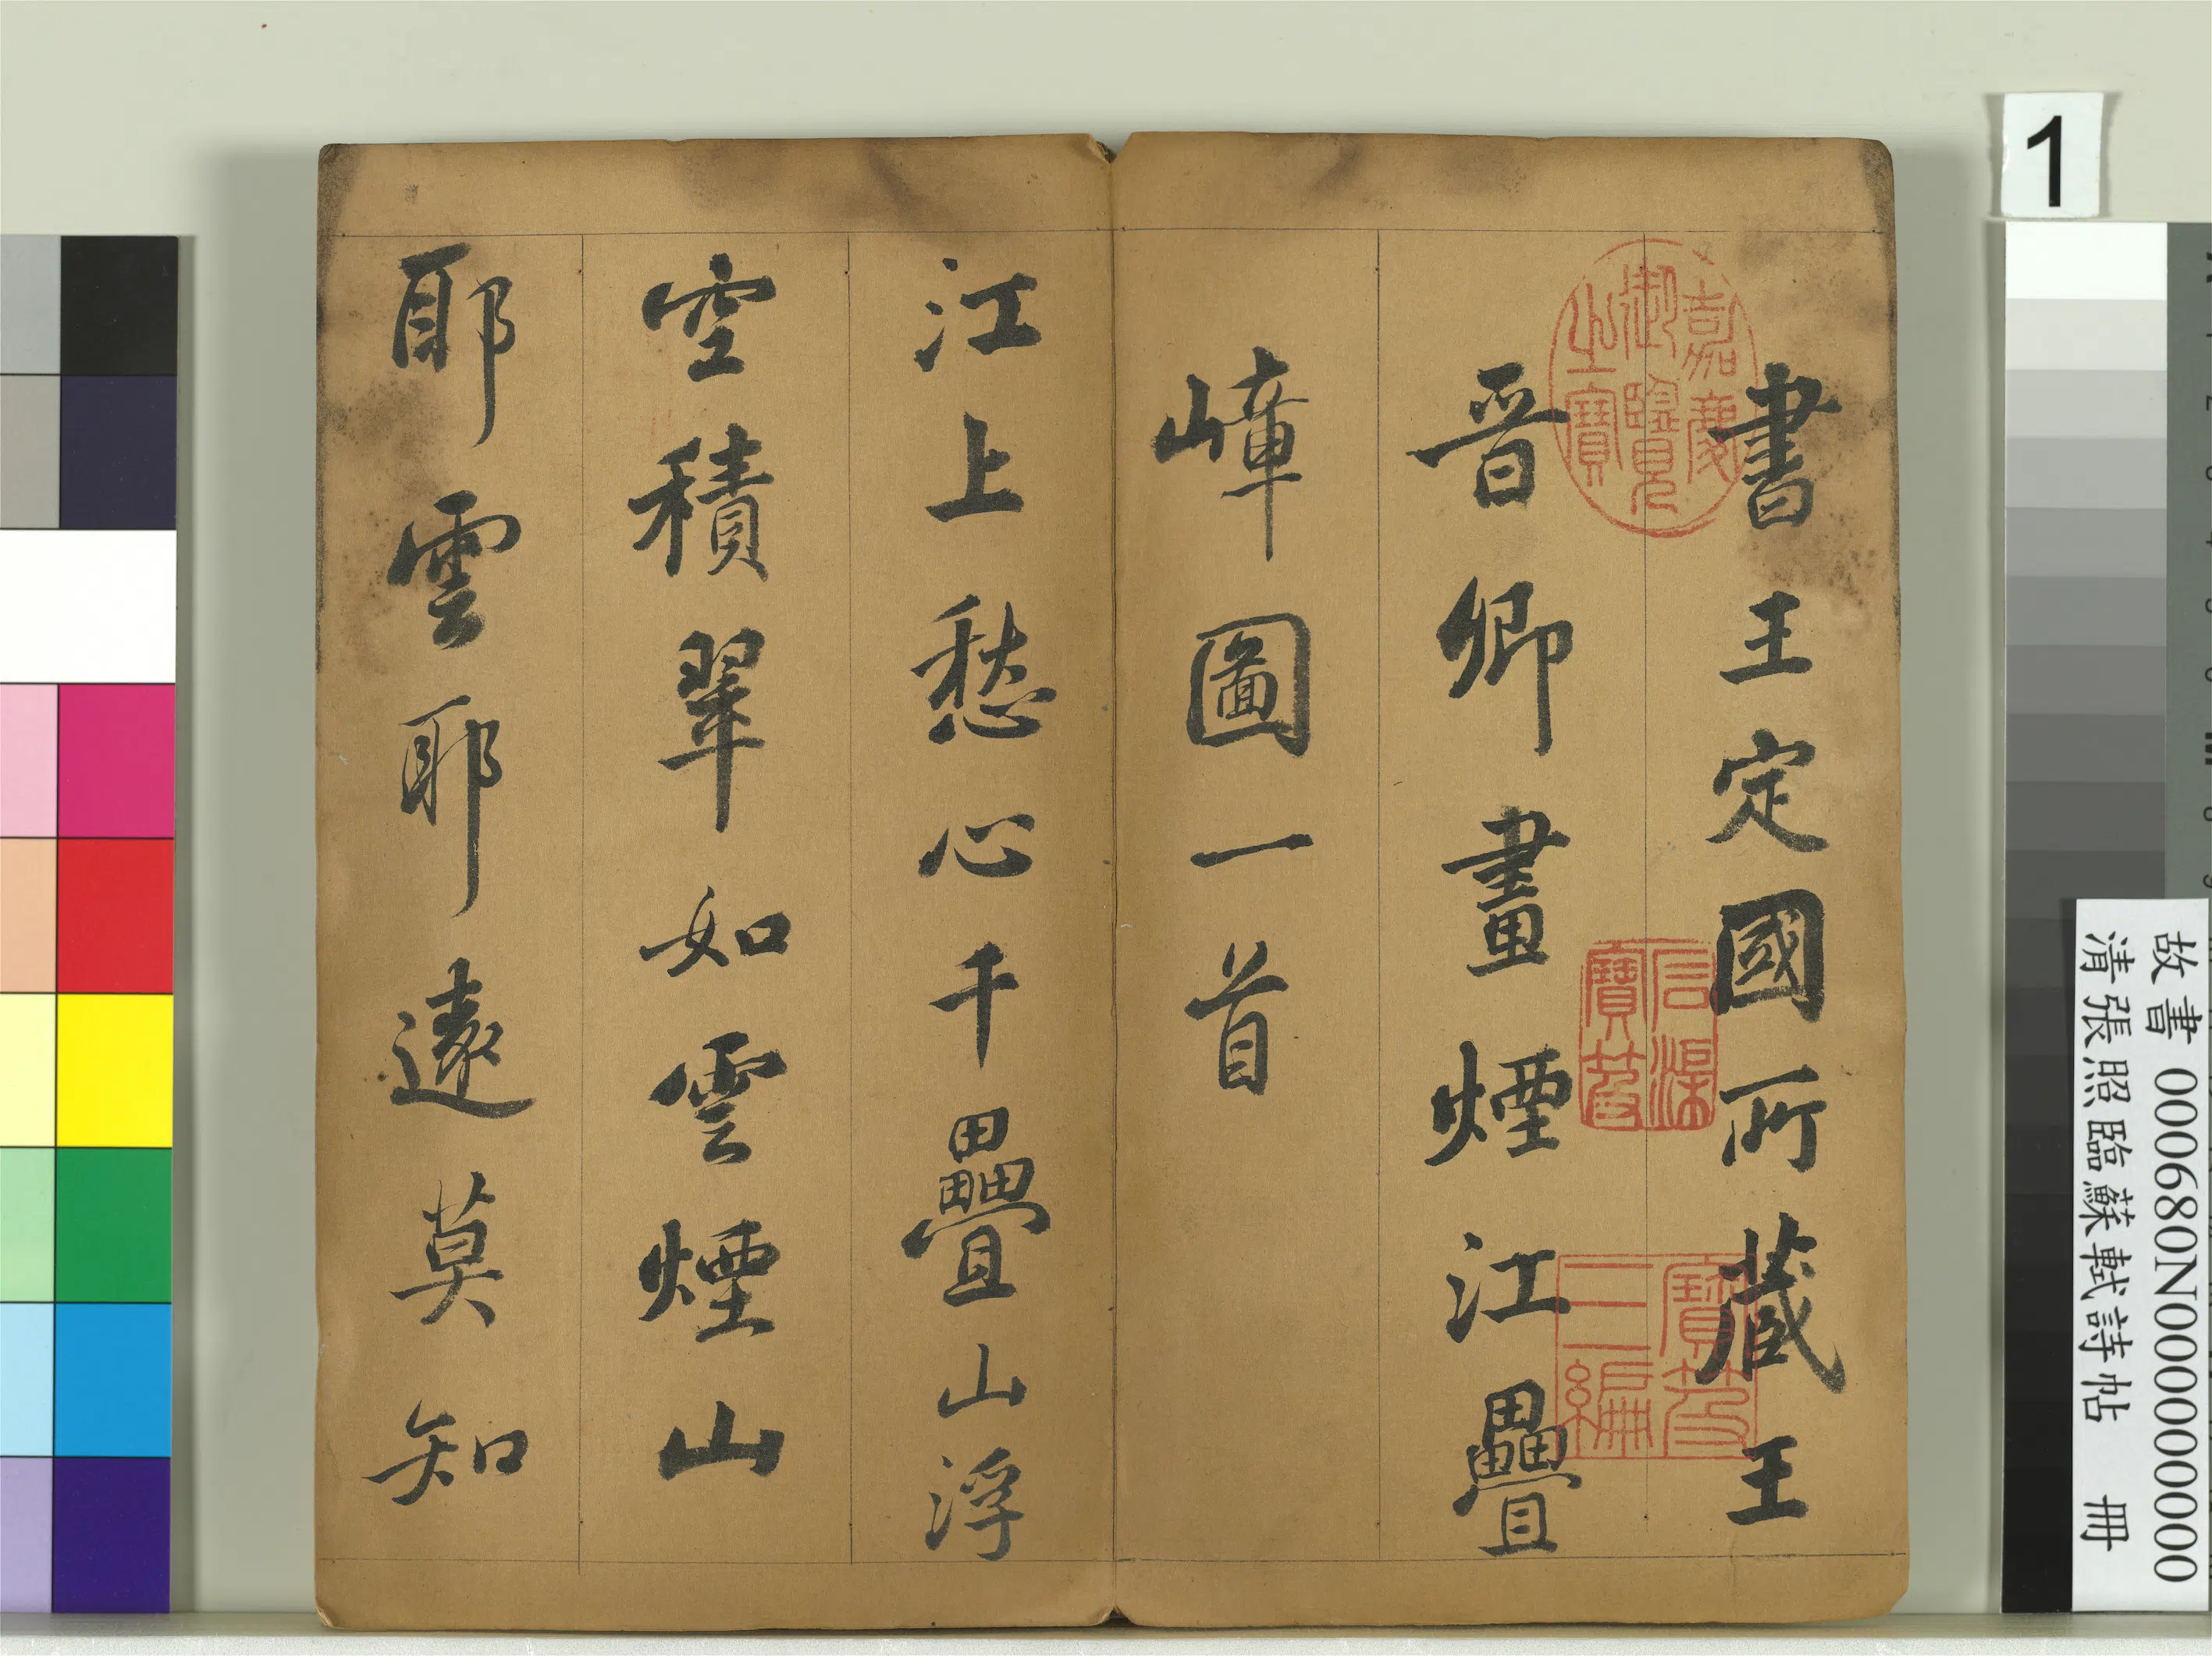 書王定國所藏王
晉卿畫煙江疊
嶂圖一首
江上愁心千疊山浮
空積翠如雲煙山
耶雲耶遠莫知
嘉慶御覽之寶
石渠寶笈
寶笈三編
1
故書 000680N000000000
清張照臨蘇軾詩帖 冊